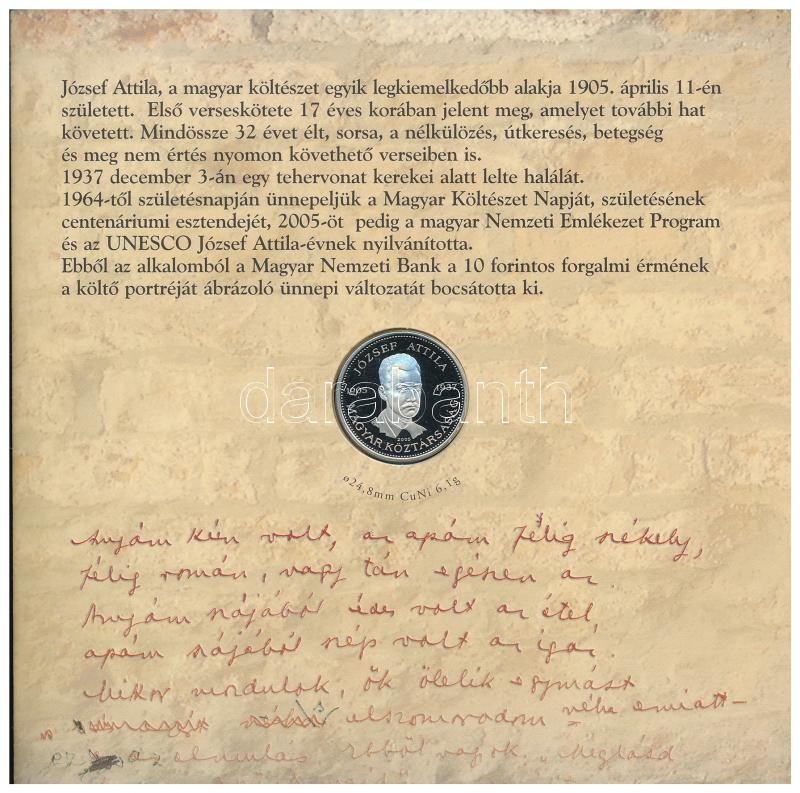 József Attila, a magyar költészet egyik legkiemelkedőbb alakja 1905. április 11-én
született. Első verseskötete 17 éves korában jelent meg, amelyet további hat
követett. Mindössze 32 évet élt, sorsa, a nélkülözés, útkeresés, betegség
és meg nem értés nyomon követhető verseiben is.
1937 december 3-án egy tehervonat kerekei alatt lelte halálát.
1964-től születésnapján ünnepeljük a Magyar Költészet Napját, születésének
centenáriumi esztendejét, 2005-öt pedig a magyar Nemzeti Emlékezet Program
és az UNESCO József Attila-évnek nyilvánította.
Ebből az alkalomból a Magyar Nemzeti Bank a 10 forintos forgalmi érmének
a költő portréját ábrázoló ünnepi változatát bocsátotta ki.
JÓZSEF ATTILA
1905 1937
2005
MAGYAR KÖZTÁRSASÁG
ø24,8mm CuNi 6,1g
Anyám kún volt, az apám félig székely,
félig román, vagy tán egészen az.
Anyám szájából édes volt az étel,
apám szájából szép volt az igaz.
Mikor mozdulok, ők ölelik egymást
elszomorodom néha emiatt –
az elmulás. Ebből vagyok. „Meglásd